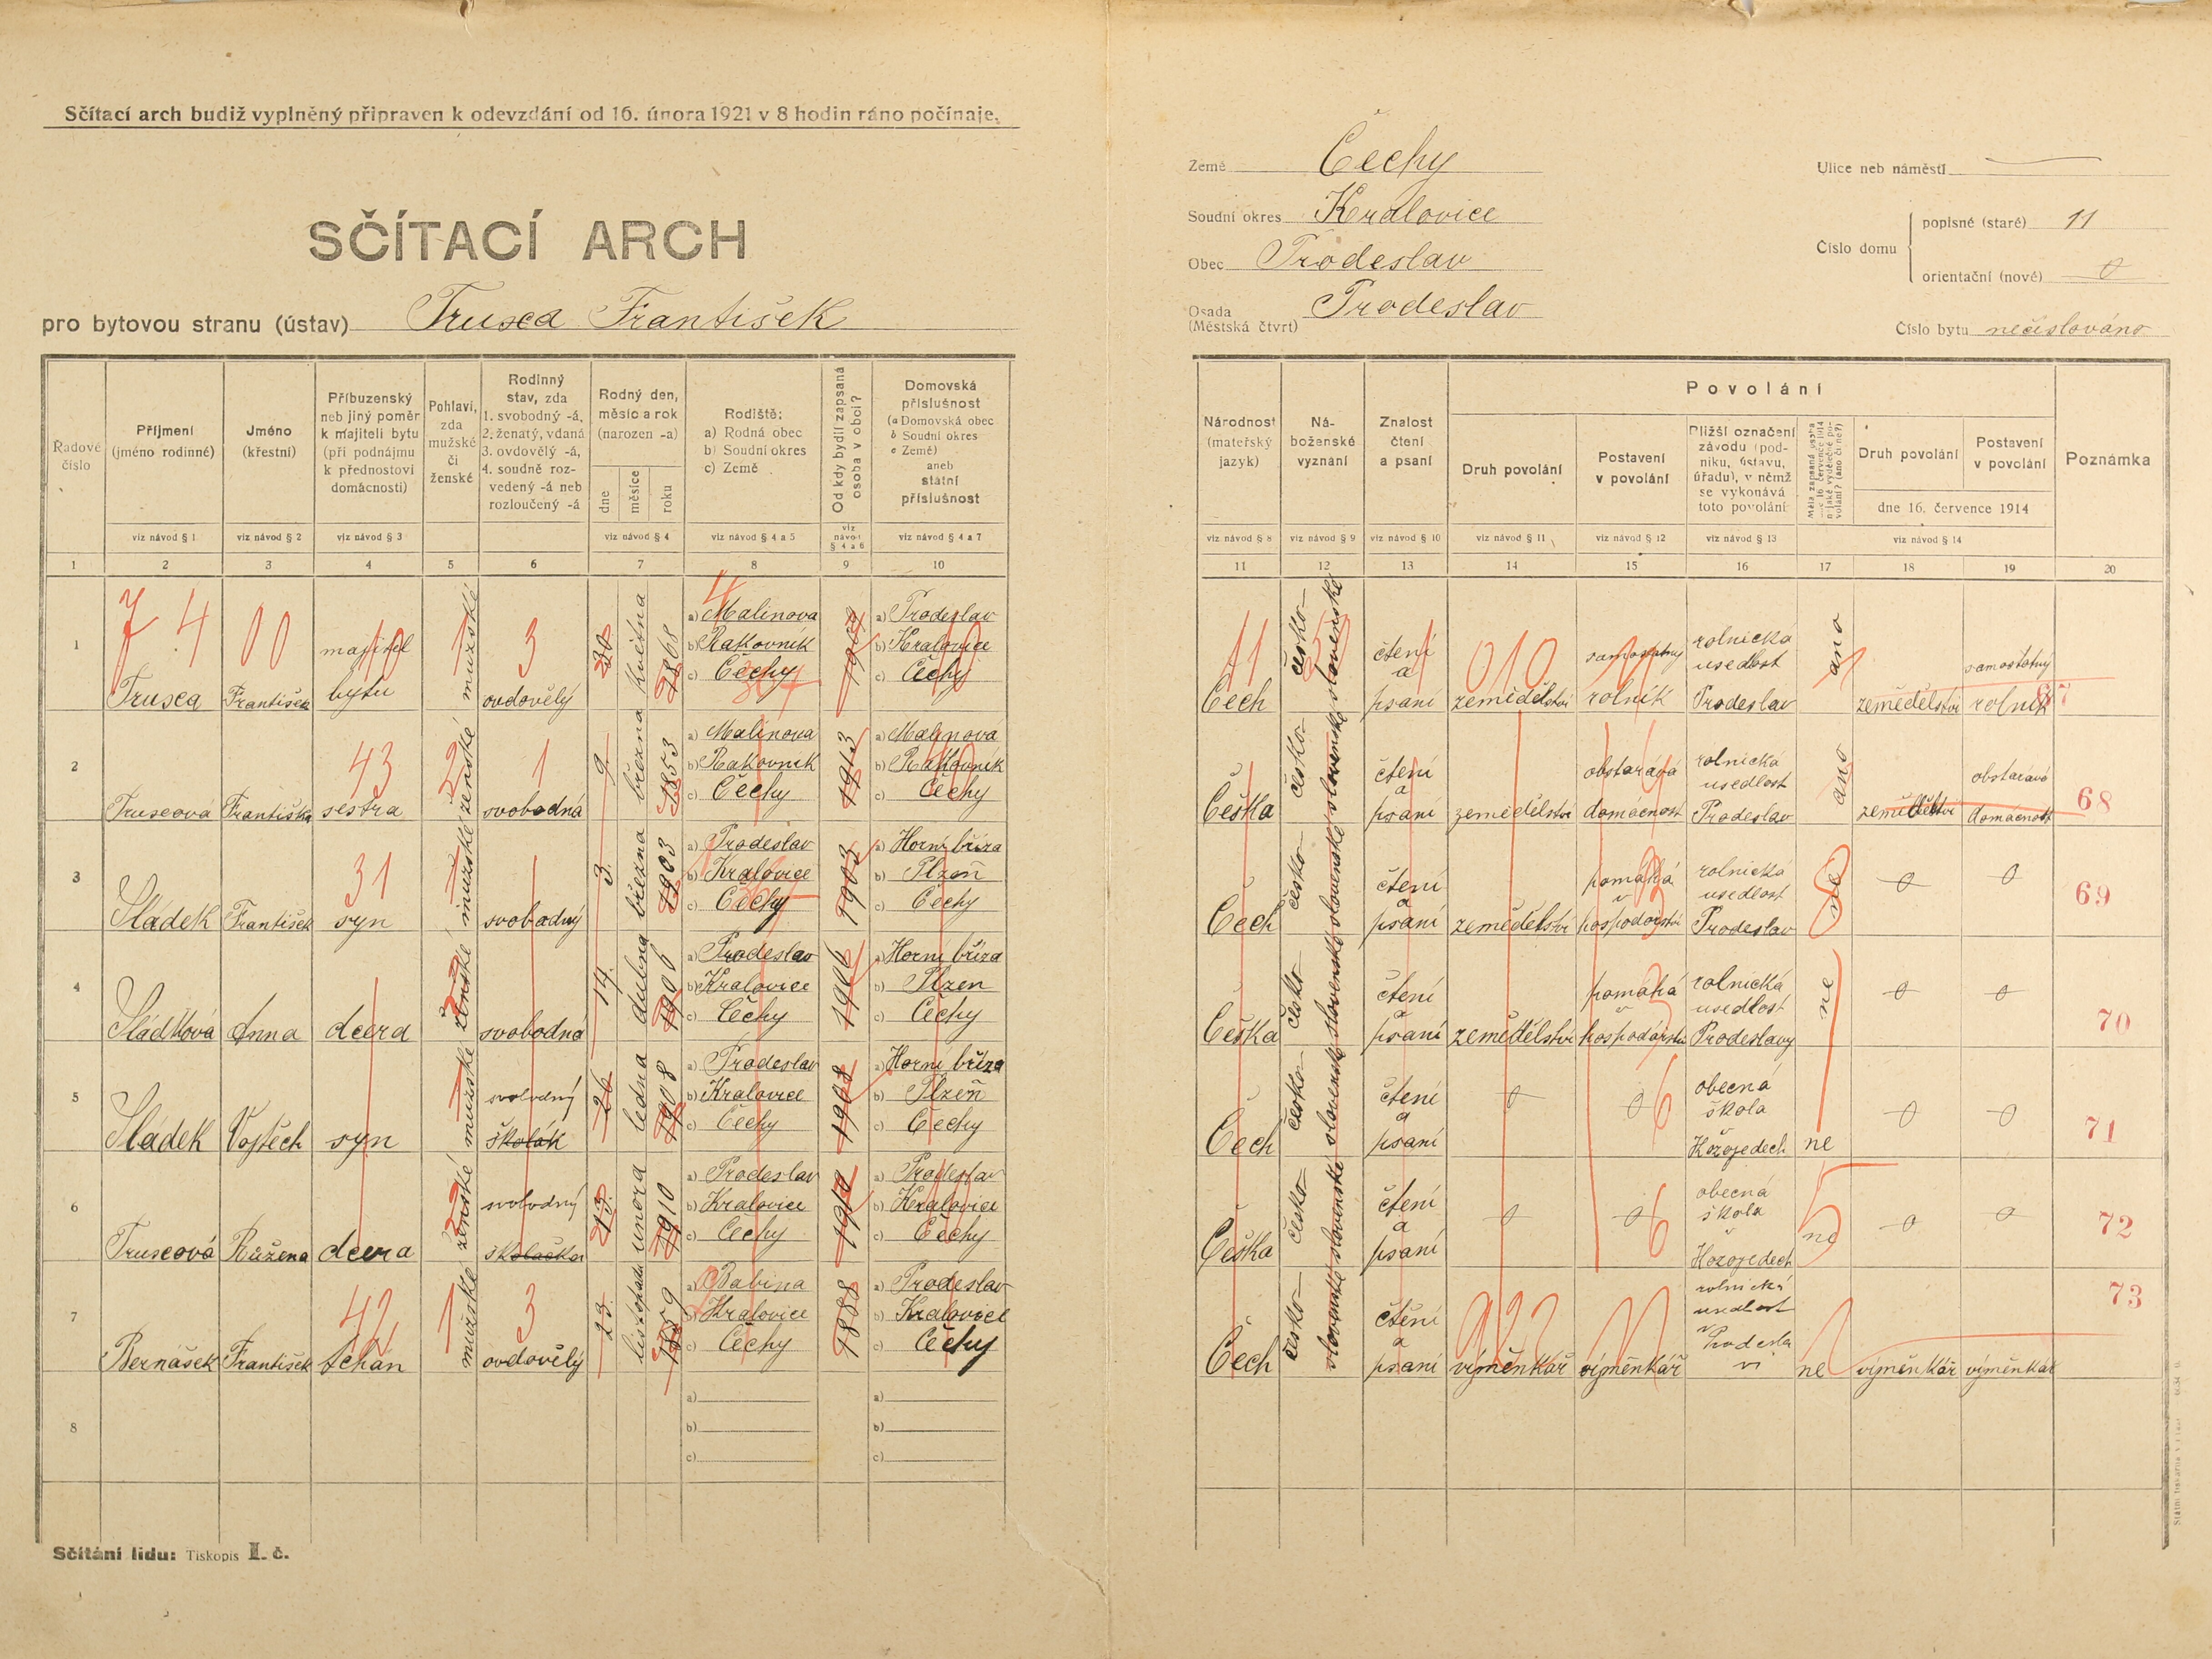 Sčítací arch budiž vyplněný připraven k odevzdání od 16. února 1921 v 8 hodin ráno počínaje.
SČÍTACÍ ARCH
pro bytovou stranu (ústav) Trusca František
Země Čechy
Soudní okres Kralovice
Obec Prodeslav
Osada (Městská čtvrt) Prodeslav
Ulice neb náměstí
Číslo domu
popisné (staré) 11
orientační (nové) 0
Číslo bytu nečíslováno
Řadové číslo
Příjmení (jméno rodinné)
Jméno (křestní)
Příbuzenský neb jiný poměr k majiteli bytu (při podnájmu k přednostovi domácnosti)
Pohlaví, zda mužské či ženské
Rodinný stav, zda 1. svobodný -á, 2. ženatý, vdaná 3. ovdovělý -á, 4. soudně rozvedený -á neb rozloučený -á
Rodný den, měsíc a rok (narozen -a)
dne měsíce roku
Rodiště: a) Rodná obec b) Soudní okres c) Země
Od kdy bydlí zapsaná osoba v obci?
Domovská příslušnost (a Domovská obec b Soudní okres c Země) aneb státní příslušnost
viz návod § 1 viz návod § 2 viz návod § 3 viz návod § 4 viz návod § 4 a 5 viz návod § 4 a 6 viz návod § 4 a 7
1 2 3 4 5 6 7 8 9 10
Národnost (mateřský jazyk)
Náboženské vyznání
Znalost čtení a psaní
Povolání
Druh povolání
Postavení v povolání
Bližší označení závodu (podniku, ústavu, úřadu), v němž se vykonává toto povolání
Druh povolání
Postavení v povolání
dne 16. července 1914
Poznámka
viz návod § 8 viz návod § 9 viz návod § 10 viz návod § 11 viz návod § 12 viz návod § 13 viz návod § 14
11 12 13 14 15 16 17 18 19 20
1 Trusca František majitel bytu mužské ovdovělý 30 května 1868
a) Malinova b) Rakovník c) Čechy
a) Prodeslav b) Kralovice c) Čechy
Čech česko-slovenské čtení a psaní zemědělství samostatný rolník rolnická usedlost Prodeslav ano zemědělství samostatný rolník 67
2 Truscová Františka sestra ženské svobodná 9 března 1853
a) Malinová b) Rakovník c) Čechy 1913
a) Malinová b) Rakovník c) Čechy
Češka česko-slovenské čtení a psaní zemědělství obstarává domácnost rolnická usedlost Prodeslav ano zemědělství obstarává domácnost 68
3 Sládek František syn mužské svobodný 3. března 1903
a) Prodeslav b) Kralovice c) Čechy 1903
a) Horní bříza b) Plzeň c) Čechy
Čech česko-slovenské čtení a psaní zemědělství pomáhá v hospodářství rolnická usedlost Prodeslav ne 0 0 69
4 Sládková Anna dcera ženské svobodná 14. dubna 1906
a) Prodeslav b) Kralovice c) Čechy 1906
a) Horní bříza b) Plzen c) Čechy
Češka česko-slovenské čtení a psaní zemědělství pomáhá v hospodářství rolnická usedlost Prodeslavy ne 0 0 70
5 Sládek Vojtěch syn mužské svobodný školák 26 ledna 1908
a) Prodeslav b) Kralovice c) Čechy 1908
a) Horní bříza b) Plzeň c) Čechy
Čech česko-slovenské čtení a psaní 0 0 obecná škola v Kožojedech ne 0 0 71
6 Truscová Růžena dcera ženské svobodný školačka 13. února 1910
a) Prodeslav b) Kralovice c) Čechy 1910
a) Prodeslav b) Kralovice c) Čechy
Češka česko-slovenské čtení a psaní 0 0 obecná škola v Kožojedech ne 0 0 72
7 Bernášek František tchán mužské ovdovělý 23. listopadu 1859
a) Babina b) Kralovice c) Čechy 1888
a) Prodeslav b) Kralovice c) Čechy
Čech česko-slovenské čtení a psaní výměnkář výměnkář rolnická usedlost v Prodeslavi ne výměnkář výměnkář 73
8
a)
b)
c)
a)
b)
c)
Sčítání lidu: Tiskopis I. č.